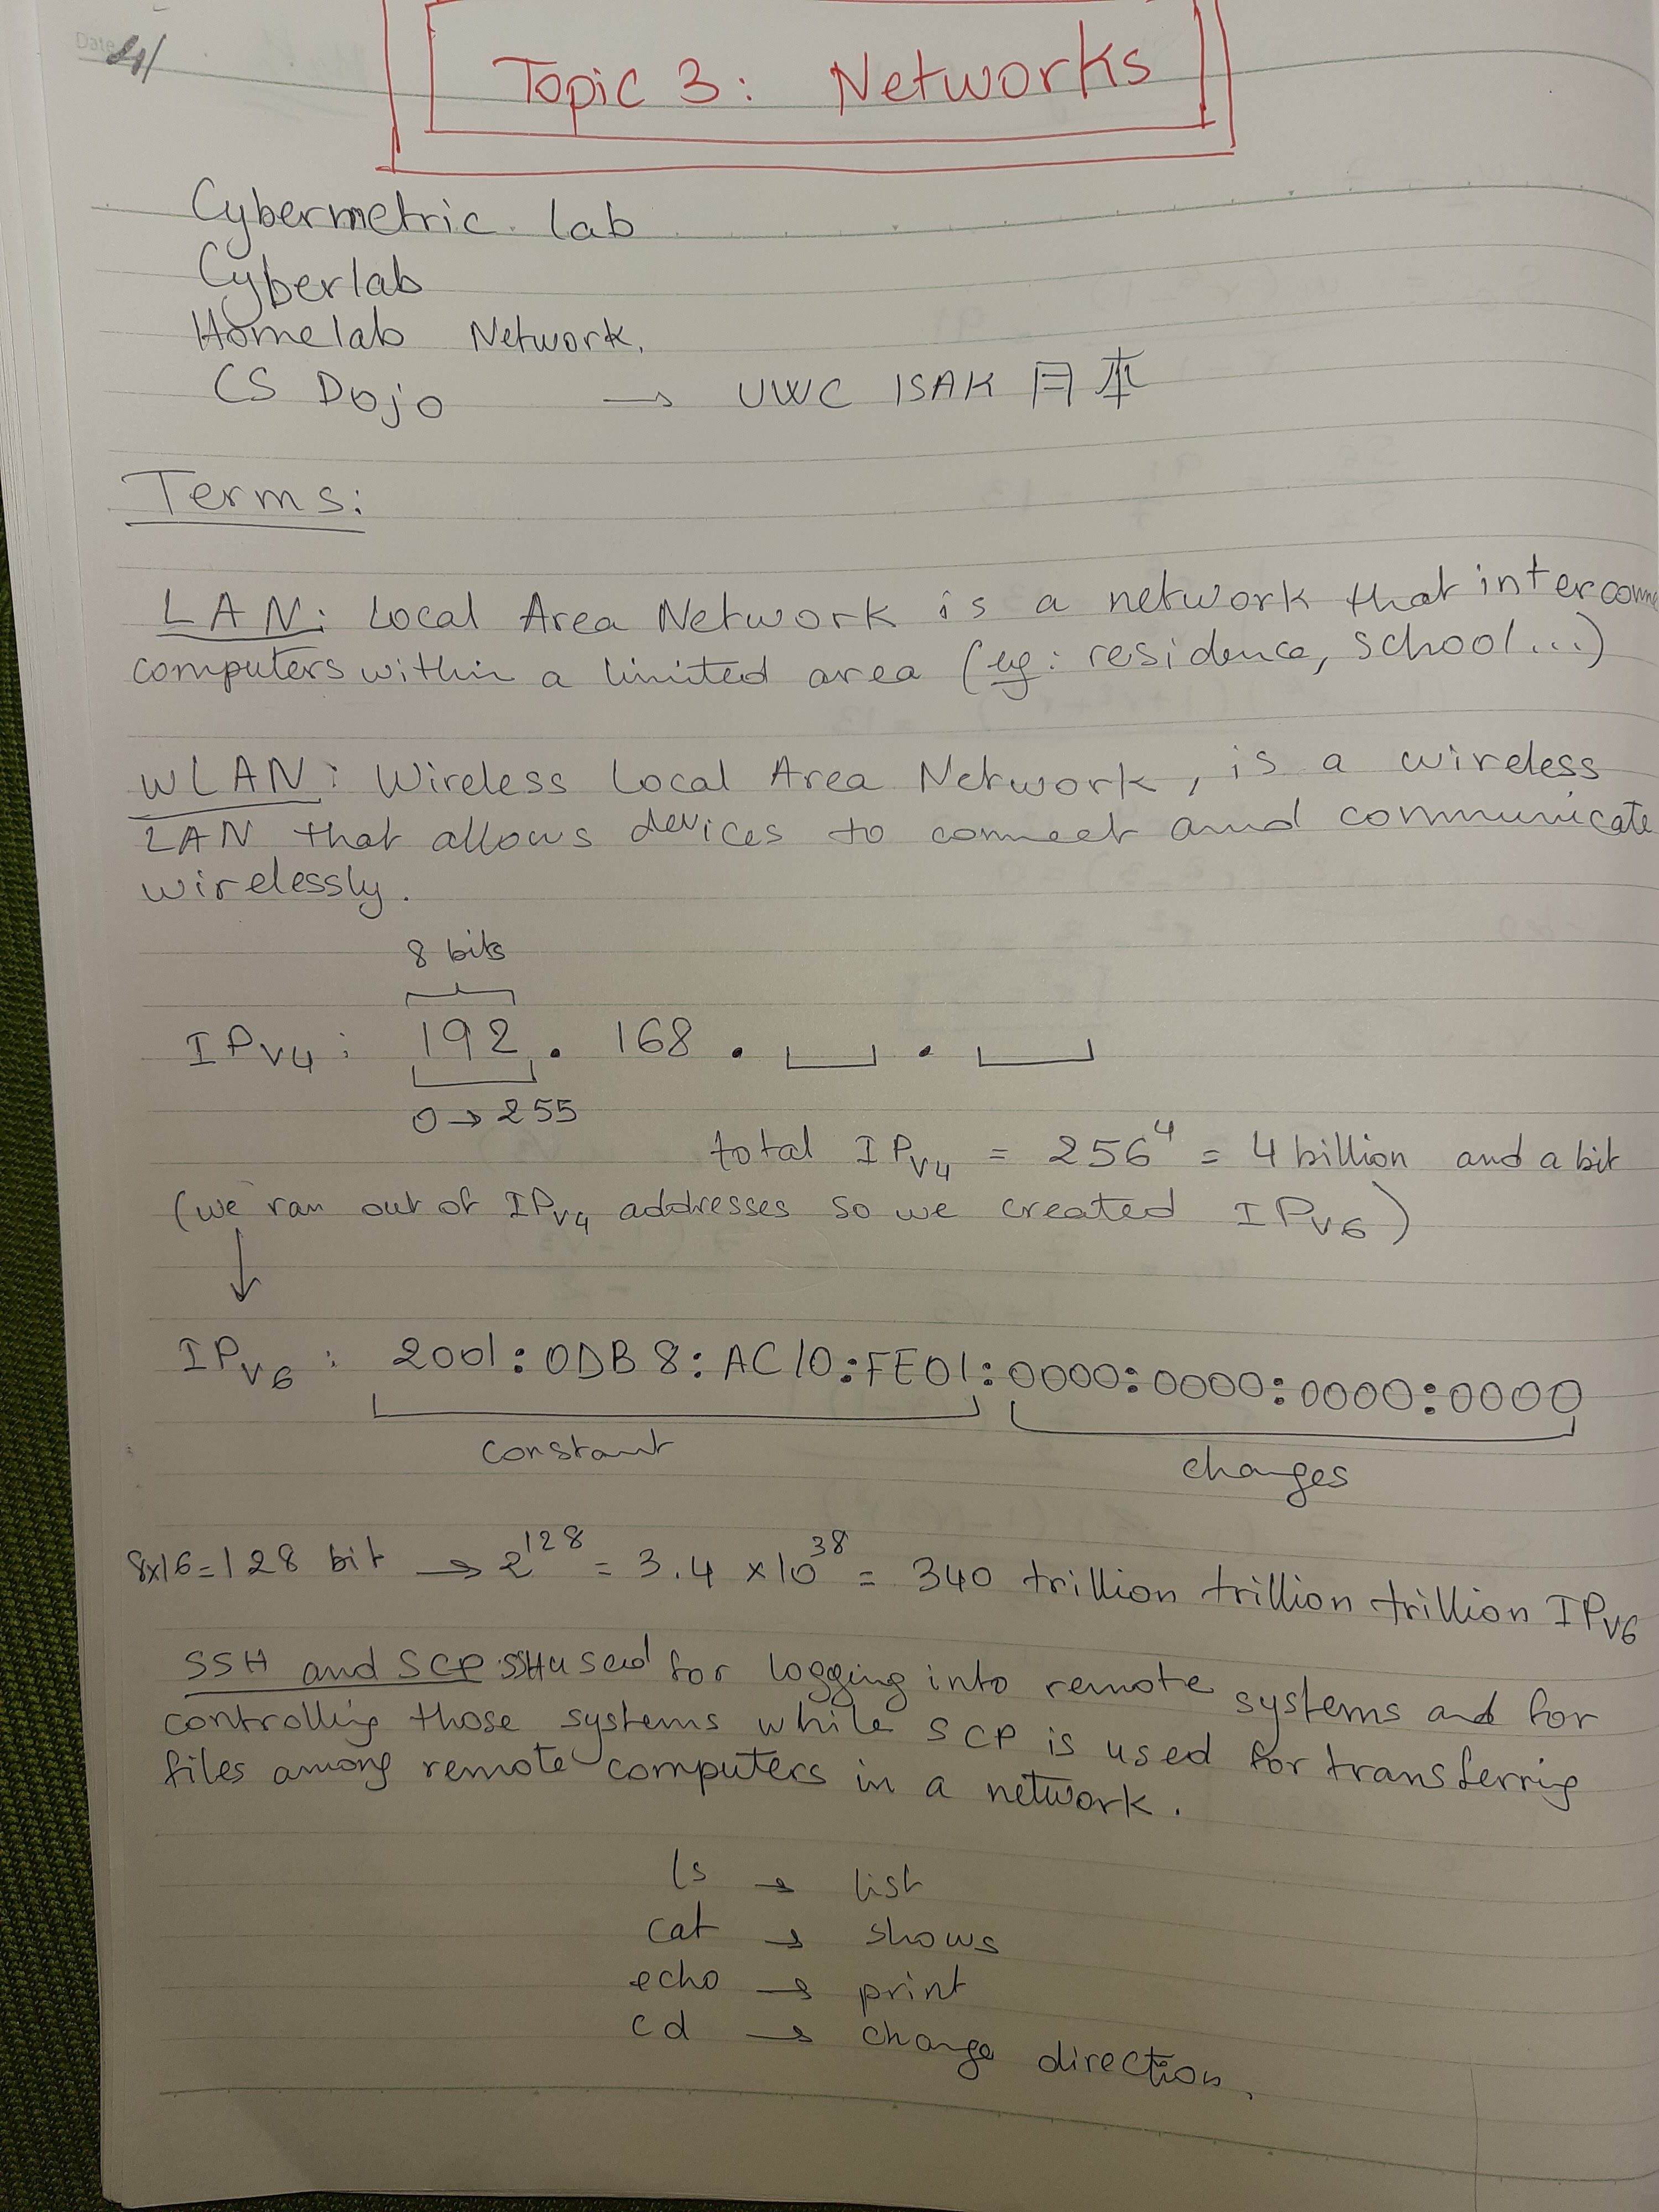 Date
Topic 3: Networks
Cybermetric lab
Cyberlab
Homelab Network.
CS Dojo → UWC ISAK 日本
Terms:
LAN: Local Area Network is a network that interconne
computers within a limited area (eg: residence, school...)
WLAN: Wireless Local Area Network, is a wireless
LAN that allows devices to connect and communicate
wirelessly.
8 bits
IPv4: 192 . 168 . . 
0 → 255
total IPv4 = 256⁴ = 4 billion and a bit
(we ran out of IPv4 addresses so we created IPv6)
IPv6: 2001:0DB8:AC10:FE01:0000:0000:0000:0000
constant
changes
8x16=128 bit → 2¹²⁸ = 3.4 ×10³⁸ = 340 trillion trillion trillion IPv6
SSH and SCP: SSH used for logging into remote systems and for
controlling those systems while SCP is used for transferring
files among remote computers in a network.
ls → list
cat → shows
echo → print
cd → change direction.